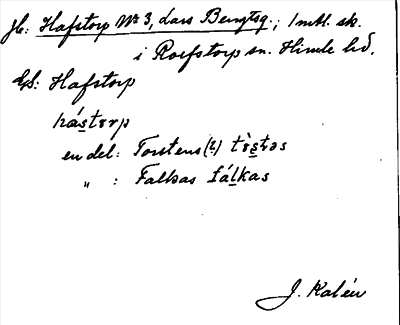 Jb: Hafstorp № 3, Lars Bengtsg.; 1 mtl. sk.
i Rolfstorp sn. Himle hd.
Gs: Hafstorp
hástorp
en del: Torstens(?) tòstəs
„ : Falkas fálkas
J. Kalén